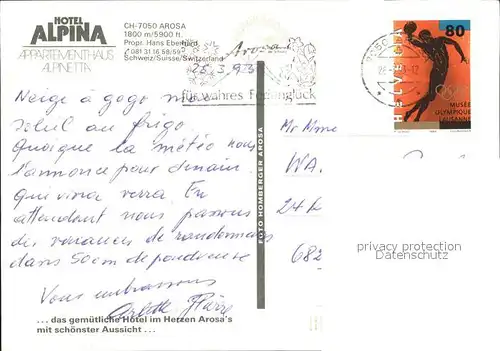 HOTEL
ALPINA
APPARTEMENTHAUS
ALPINETTA
CH-7050 AROSA
1800 m/5900 ft.
Propr. Hans Eberhard
081 31 16 58/59
Schweiz/Suisse/Switzerland
Arosa
25.3.93
für wahres Ferienglück
7050
80
HELVETIA
MUSÉE
OLYMPIQUE
LAUSANNE
Neige à gogo mais
soleil au frigo.
Quoique la météo nous
l'annonce pour demain
Qui vivra verra. En
attendant nous passons
des vacances de randonnées
dans 50cm de poudreuse
Vous embrassons
Pierre
Mr Mme
WA
24
682
FOTO HOMBERGER AROSA
privacy protection
Datenschutz
... das gemütliche Hotel im Herzen Arosa's
mit schönster Aussicht ...